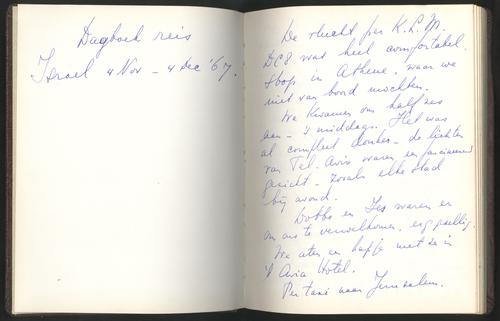 Dagboek reis
Israel 4 Nov – 4 Dec '67.
De vlucht per K.L.M.
DC8 was heel comfortabel.
Stop in Athene, waar we
niet van boord mochten.
We kwamen om half zes
aan – 's middags. Het was
al compleet donker – de lichten
van Tel-Aviv waren een fascinerend
gezicht – zoals elke stad
bij avond.
Bobbe en Jes waren er
om ons te verwelkomen, erg gezellig.
We aten een hapje met ze in
't Avia Hotel.
Per taxi naar Jerusalem.